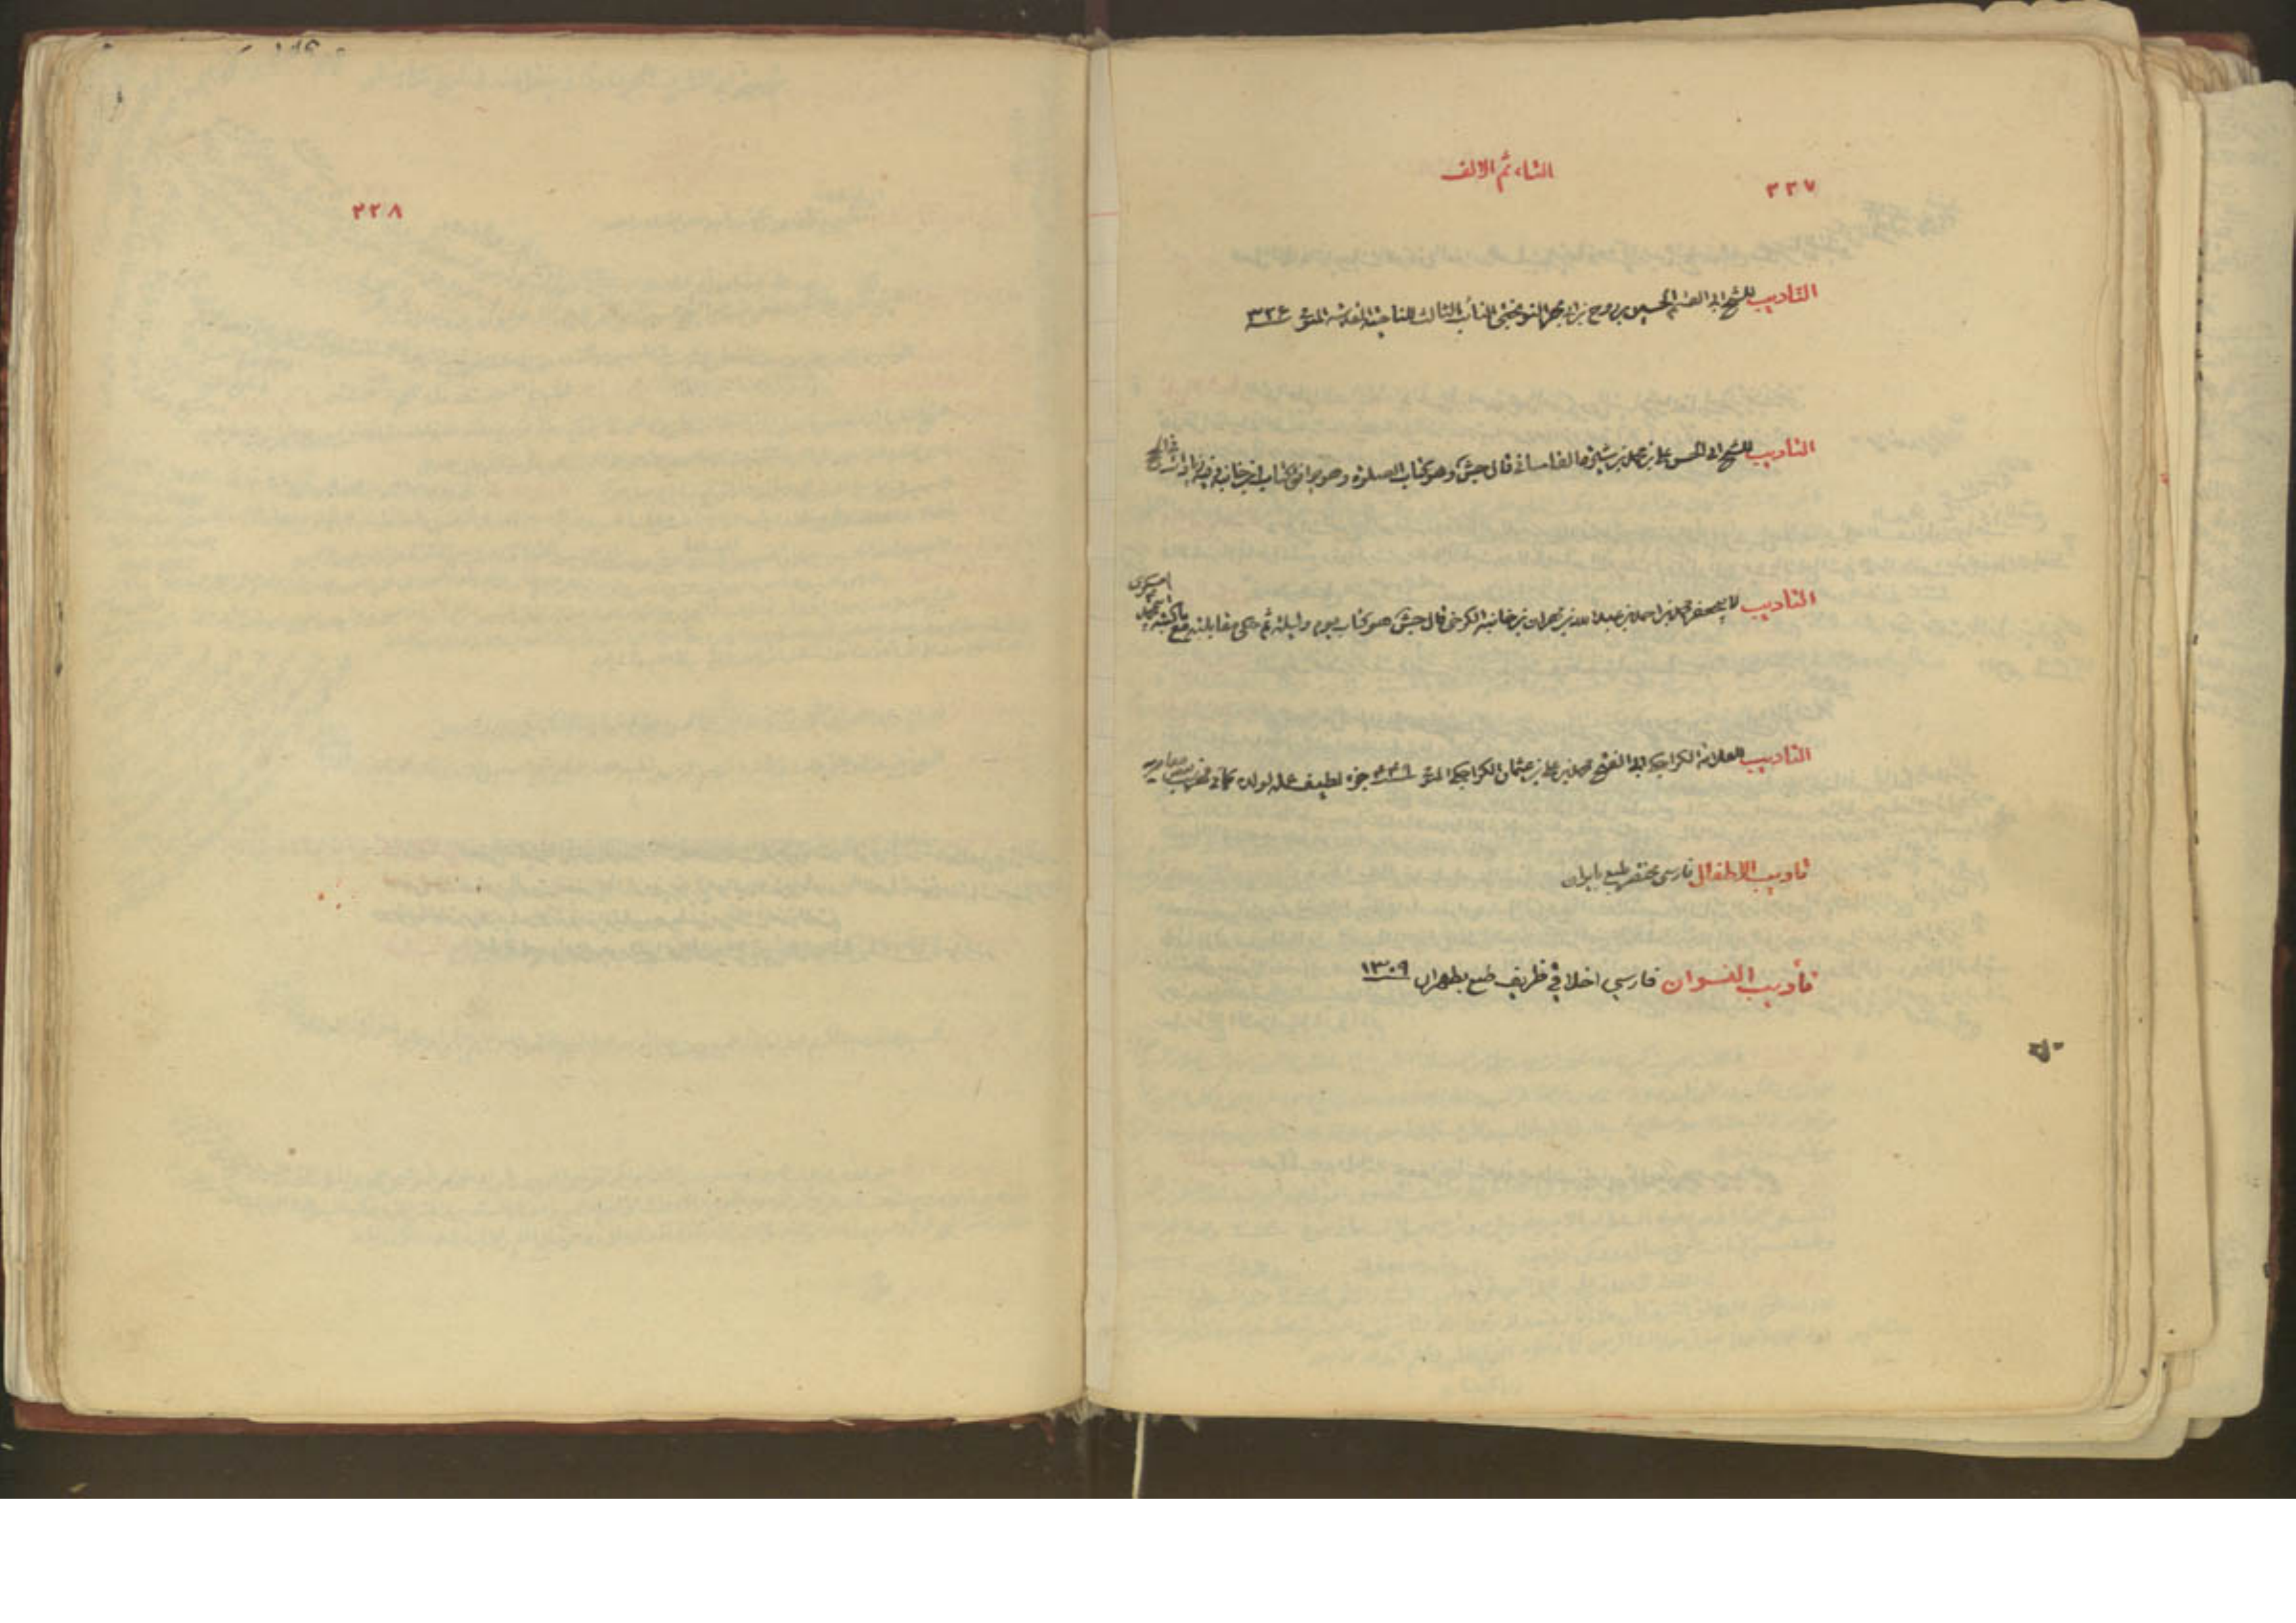 ٢٢٧
التاء ثم الالف
التاديب للشيخ ابى القسم الحسين بن روح بن ابى بحر النوبختى النائب الثالث للناحية المقدسة المتوفى ٣٢٦
التاديب للشيخ ابى الحسن على بن محمد بن شيرة القاسانى قال جش وهو كتاب الصلوة وهو يوافق كتاب ابن خانبه
التاديب لابي جعفر محمد بن احمد بن عبد الله بن مهران بن خانبه الكرخى قال جش هو كتاب يوم وليلة ثم حكى مقابلته مع
التاديب للعلامة الكراجكى ابى الفتح محمد بن على بن عثمان الكراجكى المتوفى ٤٤٩ جزء لطيف عمله لولده كما فى فهرس
تاديب الاطفال فارسى مختصر طبع بايران
تأديب النسوان فارسي اخلاقي ظريف طبع بطهران ١٣٠٩
٢٢٨